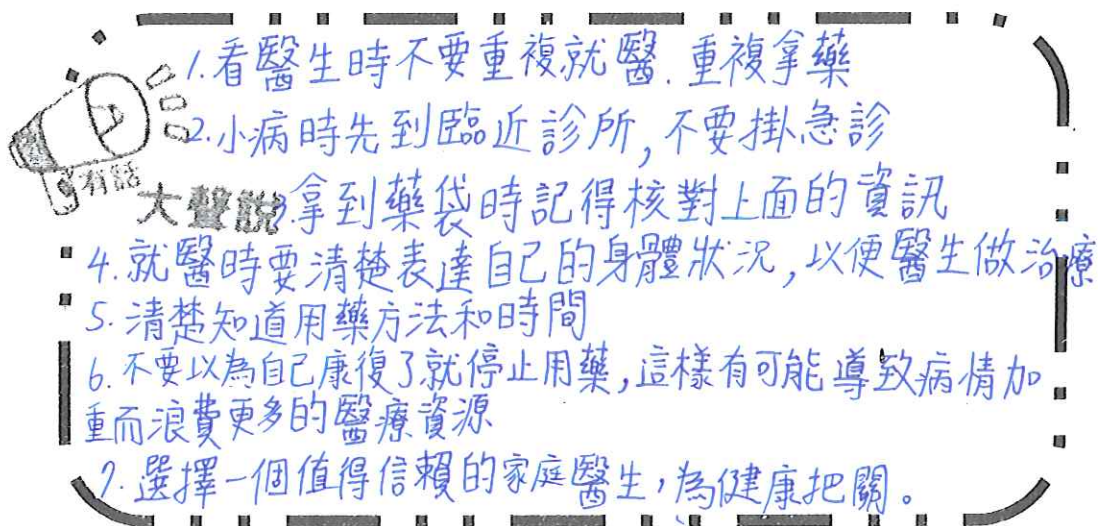 1.看醫生時不要重複就醫.重複拿藥
2.小病時先到臨近診所,不要掛急診
有話
大聲說
3.拿到藥袋時記得核對上面的資訊
4.就醫時要清楚表達自己的身體狀況,以便醫生做治療
5.清楚知道用藥方法和時間
6.不要以為自己康復了就停止用藥,這樣有可能導致病情加
重而浪費更多的醫療資源
7.選擇一個值得信賴的家庭醫生,為健康把關。